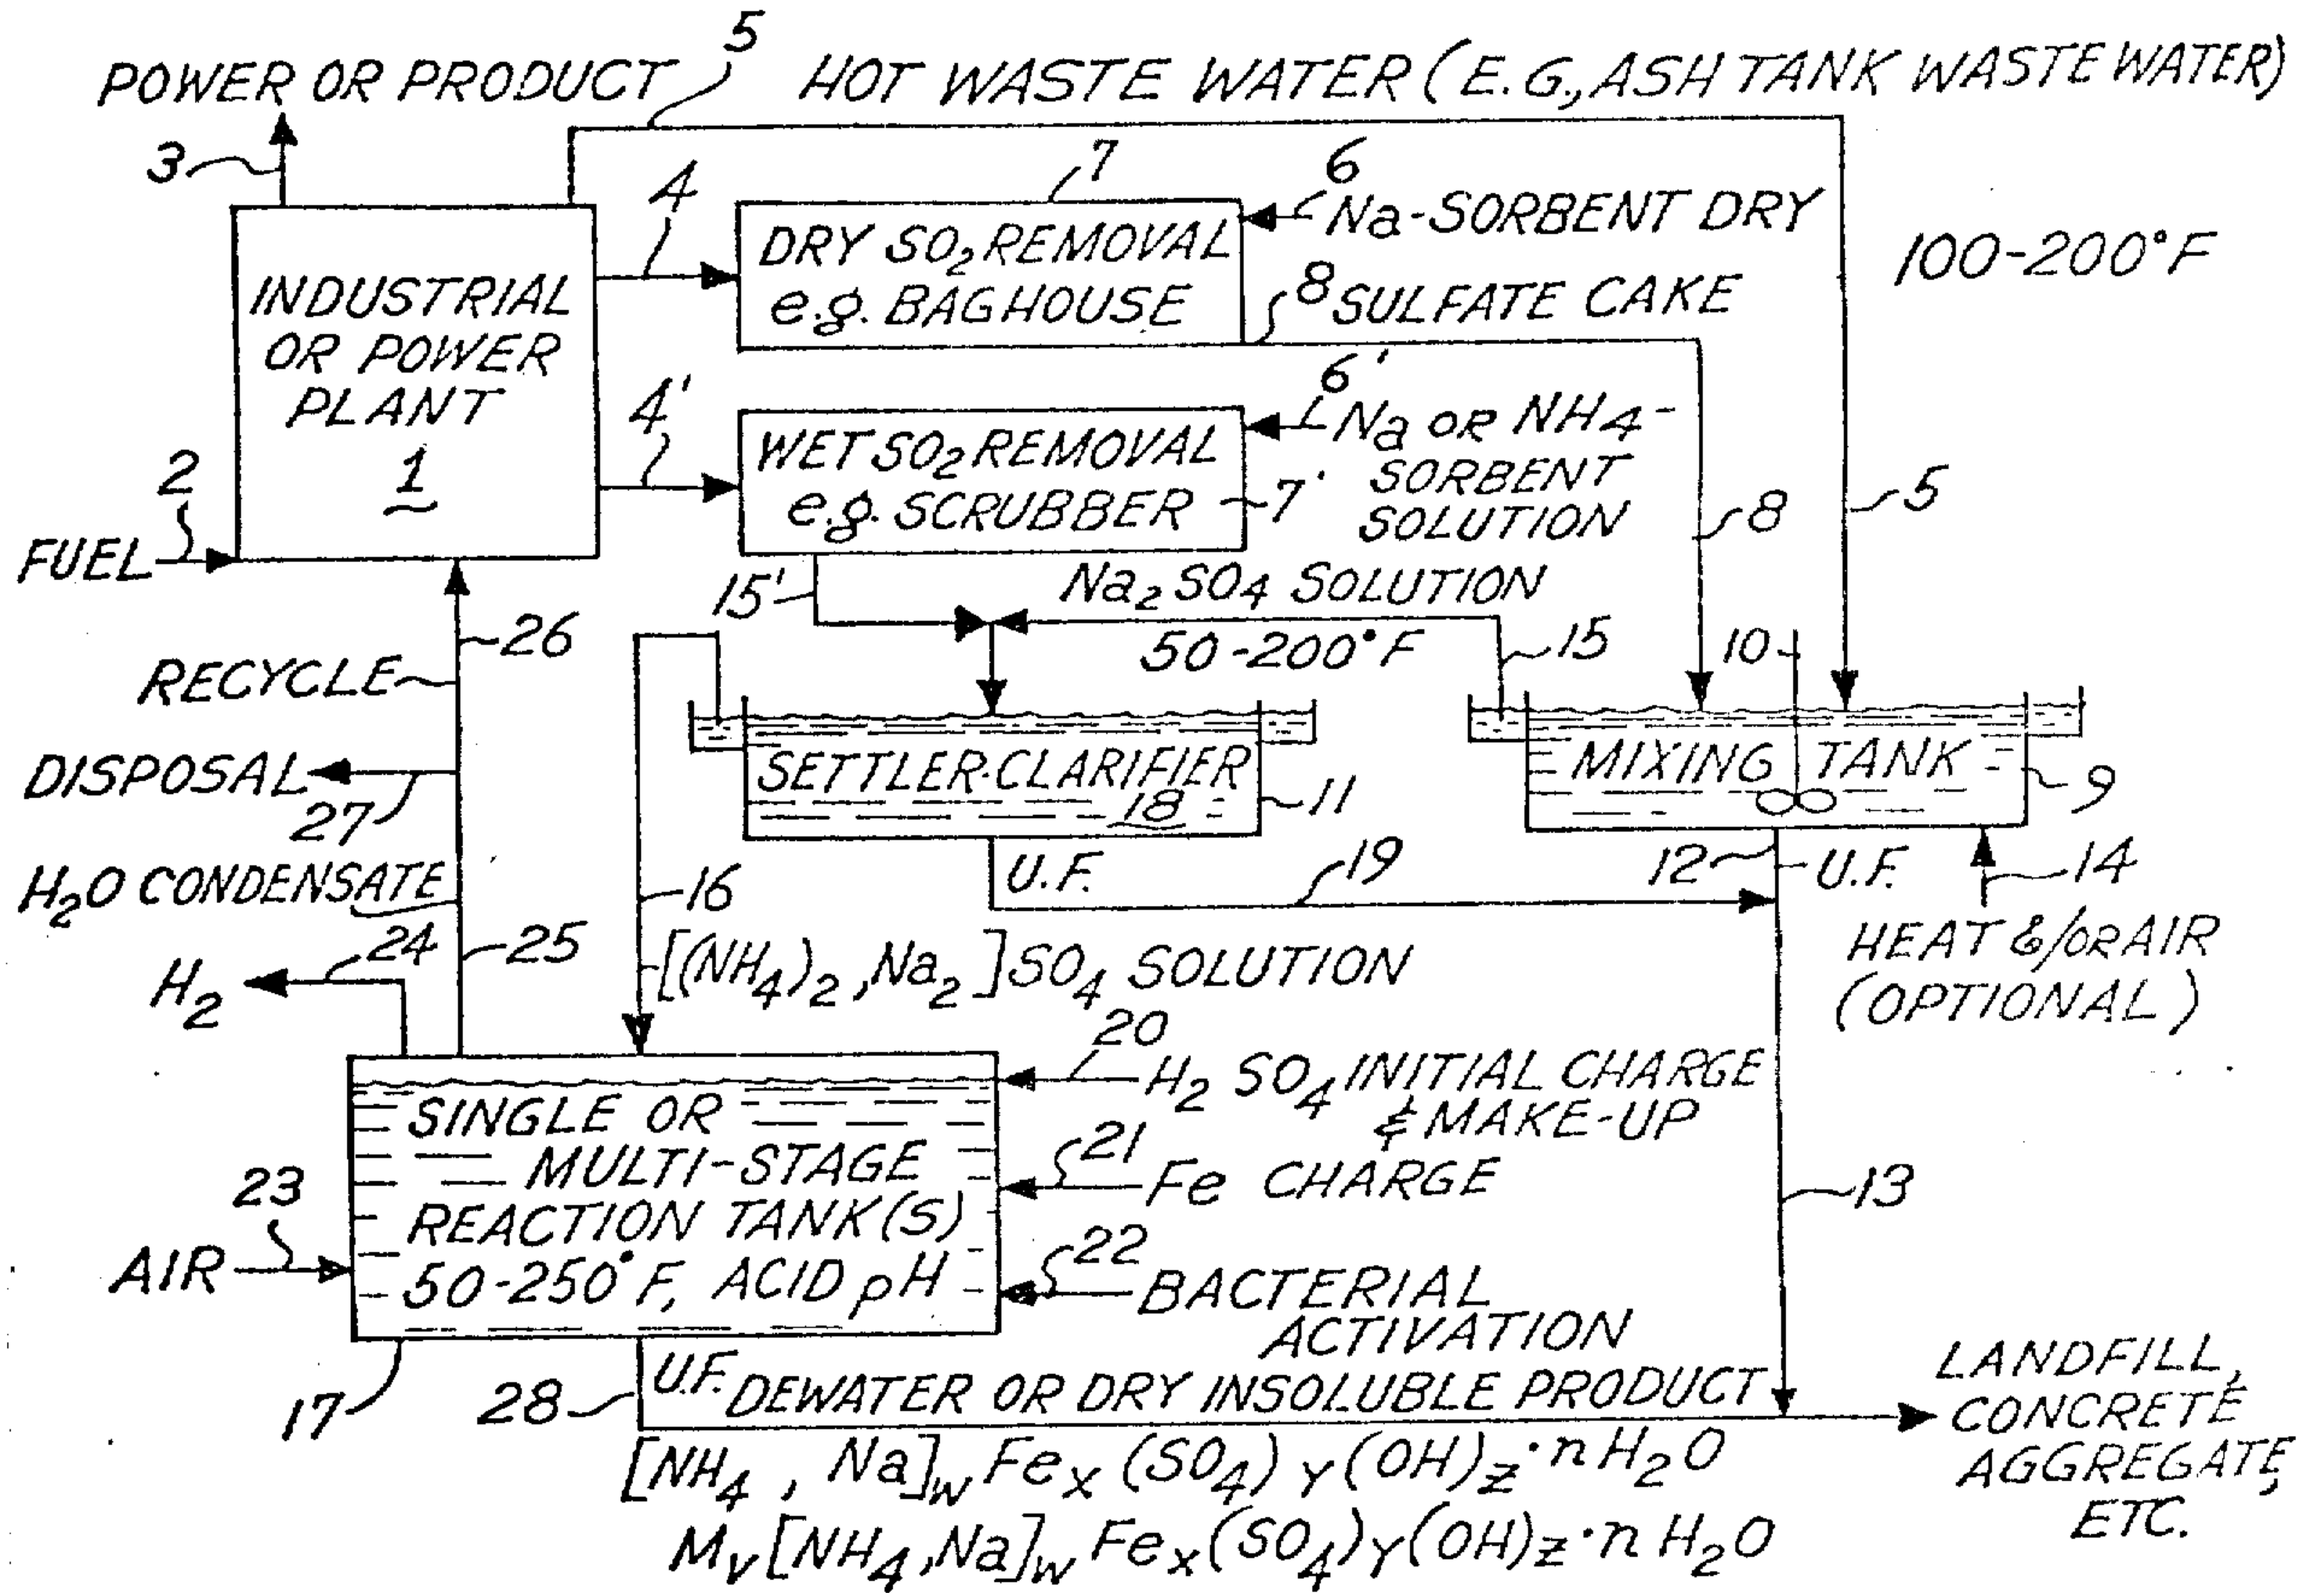 5
POWER OR PRODUCT
HOT WASTE WATER (E.G., ASH TANK WASTE WATER)
3
4
7
6
Na-SORBENT DRY
DRY SO2 REMOVAL
e.g. BAGHOUSE
8 SULFATE CAKE
100-200°F
INDUSTRIAL
OR POWER
PLANT
1
4'
6'
Na OR NH4-
SORBENT
SOLUTION
WET SO2 REMOVAL
e.g. SCRUBBER
7'
8
5
2
FUEL
15'
Na2SO4 SOLUTION
50-200°F
15
10
26
RECYCLE
DISPOSAL
27
SETTLER-CLARIFIER
18
11
MIXING TANK
9
H2O CONDENSATE
16
U.F.
19
12
U.F.
14
HEAT &/OR AIR
(OPTIONAL)
24
25
H2
[(NH4)2, Na2]SO4 SOLUTION
20
H2SO4 INITIAL CHARGE
& MAKE-UP
SINGLE OR
MULTI-STAGE
REACTION TANK(S)
50-250°F, ACID pH
21
Fe CHARGE
13
23
AIR
22
BACTERIAL
ACTIVATION
17
28
U.F. DEWATER OR DRY INSOLUBLE PRODUCT
LANDFILL,
CONCRETE
AGGREGATE,
ETC.
[NH4, Na]w Fex (SO4)Y (OH)z·nH2O
Mv[NH4, Na]w Fex(SO4)Y(OH)z·nH2O